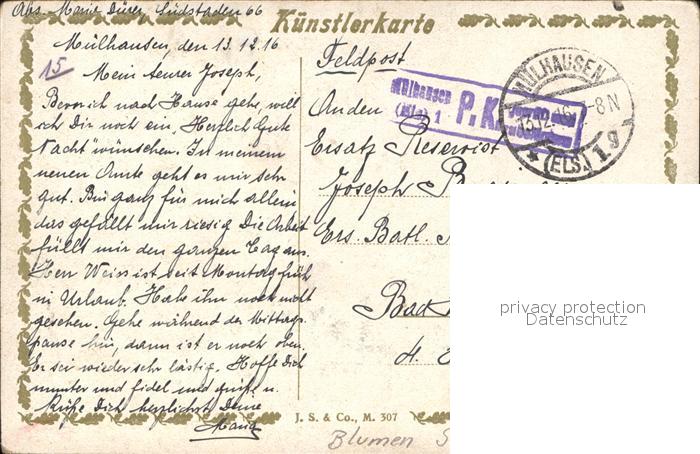 Abs. Marie Dürer, Südstaden 66
Künstlerkarte
Mülhausen, den 13.12.16
15
Mein teurer Joseph,
Bevor ich nach Hause gehe, will
ich Dir noch ein "Herzlich Gute
Nacht" wünschen. In meinem
neuen Amte geht es mir sehr
gut. Bin ganz für mich allein
das gefällt mir riesig. Die Arbeit
füllt mir den ganzen Tag aus.
Herr Weiss ist seit Montag früh
in Urlaub. Hab ihn noch nicht
gesehen. Gehe während der Mittags
pause hin, dann ist er noch oben.
Er sei wieder sehr lästig. Hoffe Dich
munter und fidel und grüße u.
küße Dich herzlichst Deine
Marie
Feldpost
An den
Ersatz Reservist
Joseph
Ers. Batl.
Bad
4.
Mülhausen
(Els) 1
P.K.
MÜLHAUSEN
13.12.16 7-8N
* (ELS.) 1g
privacy protection
Datenschutz
J. S. & Co., M. 307
Blumen S